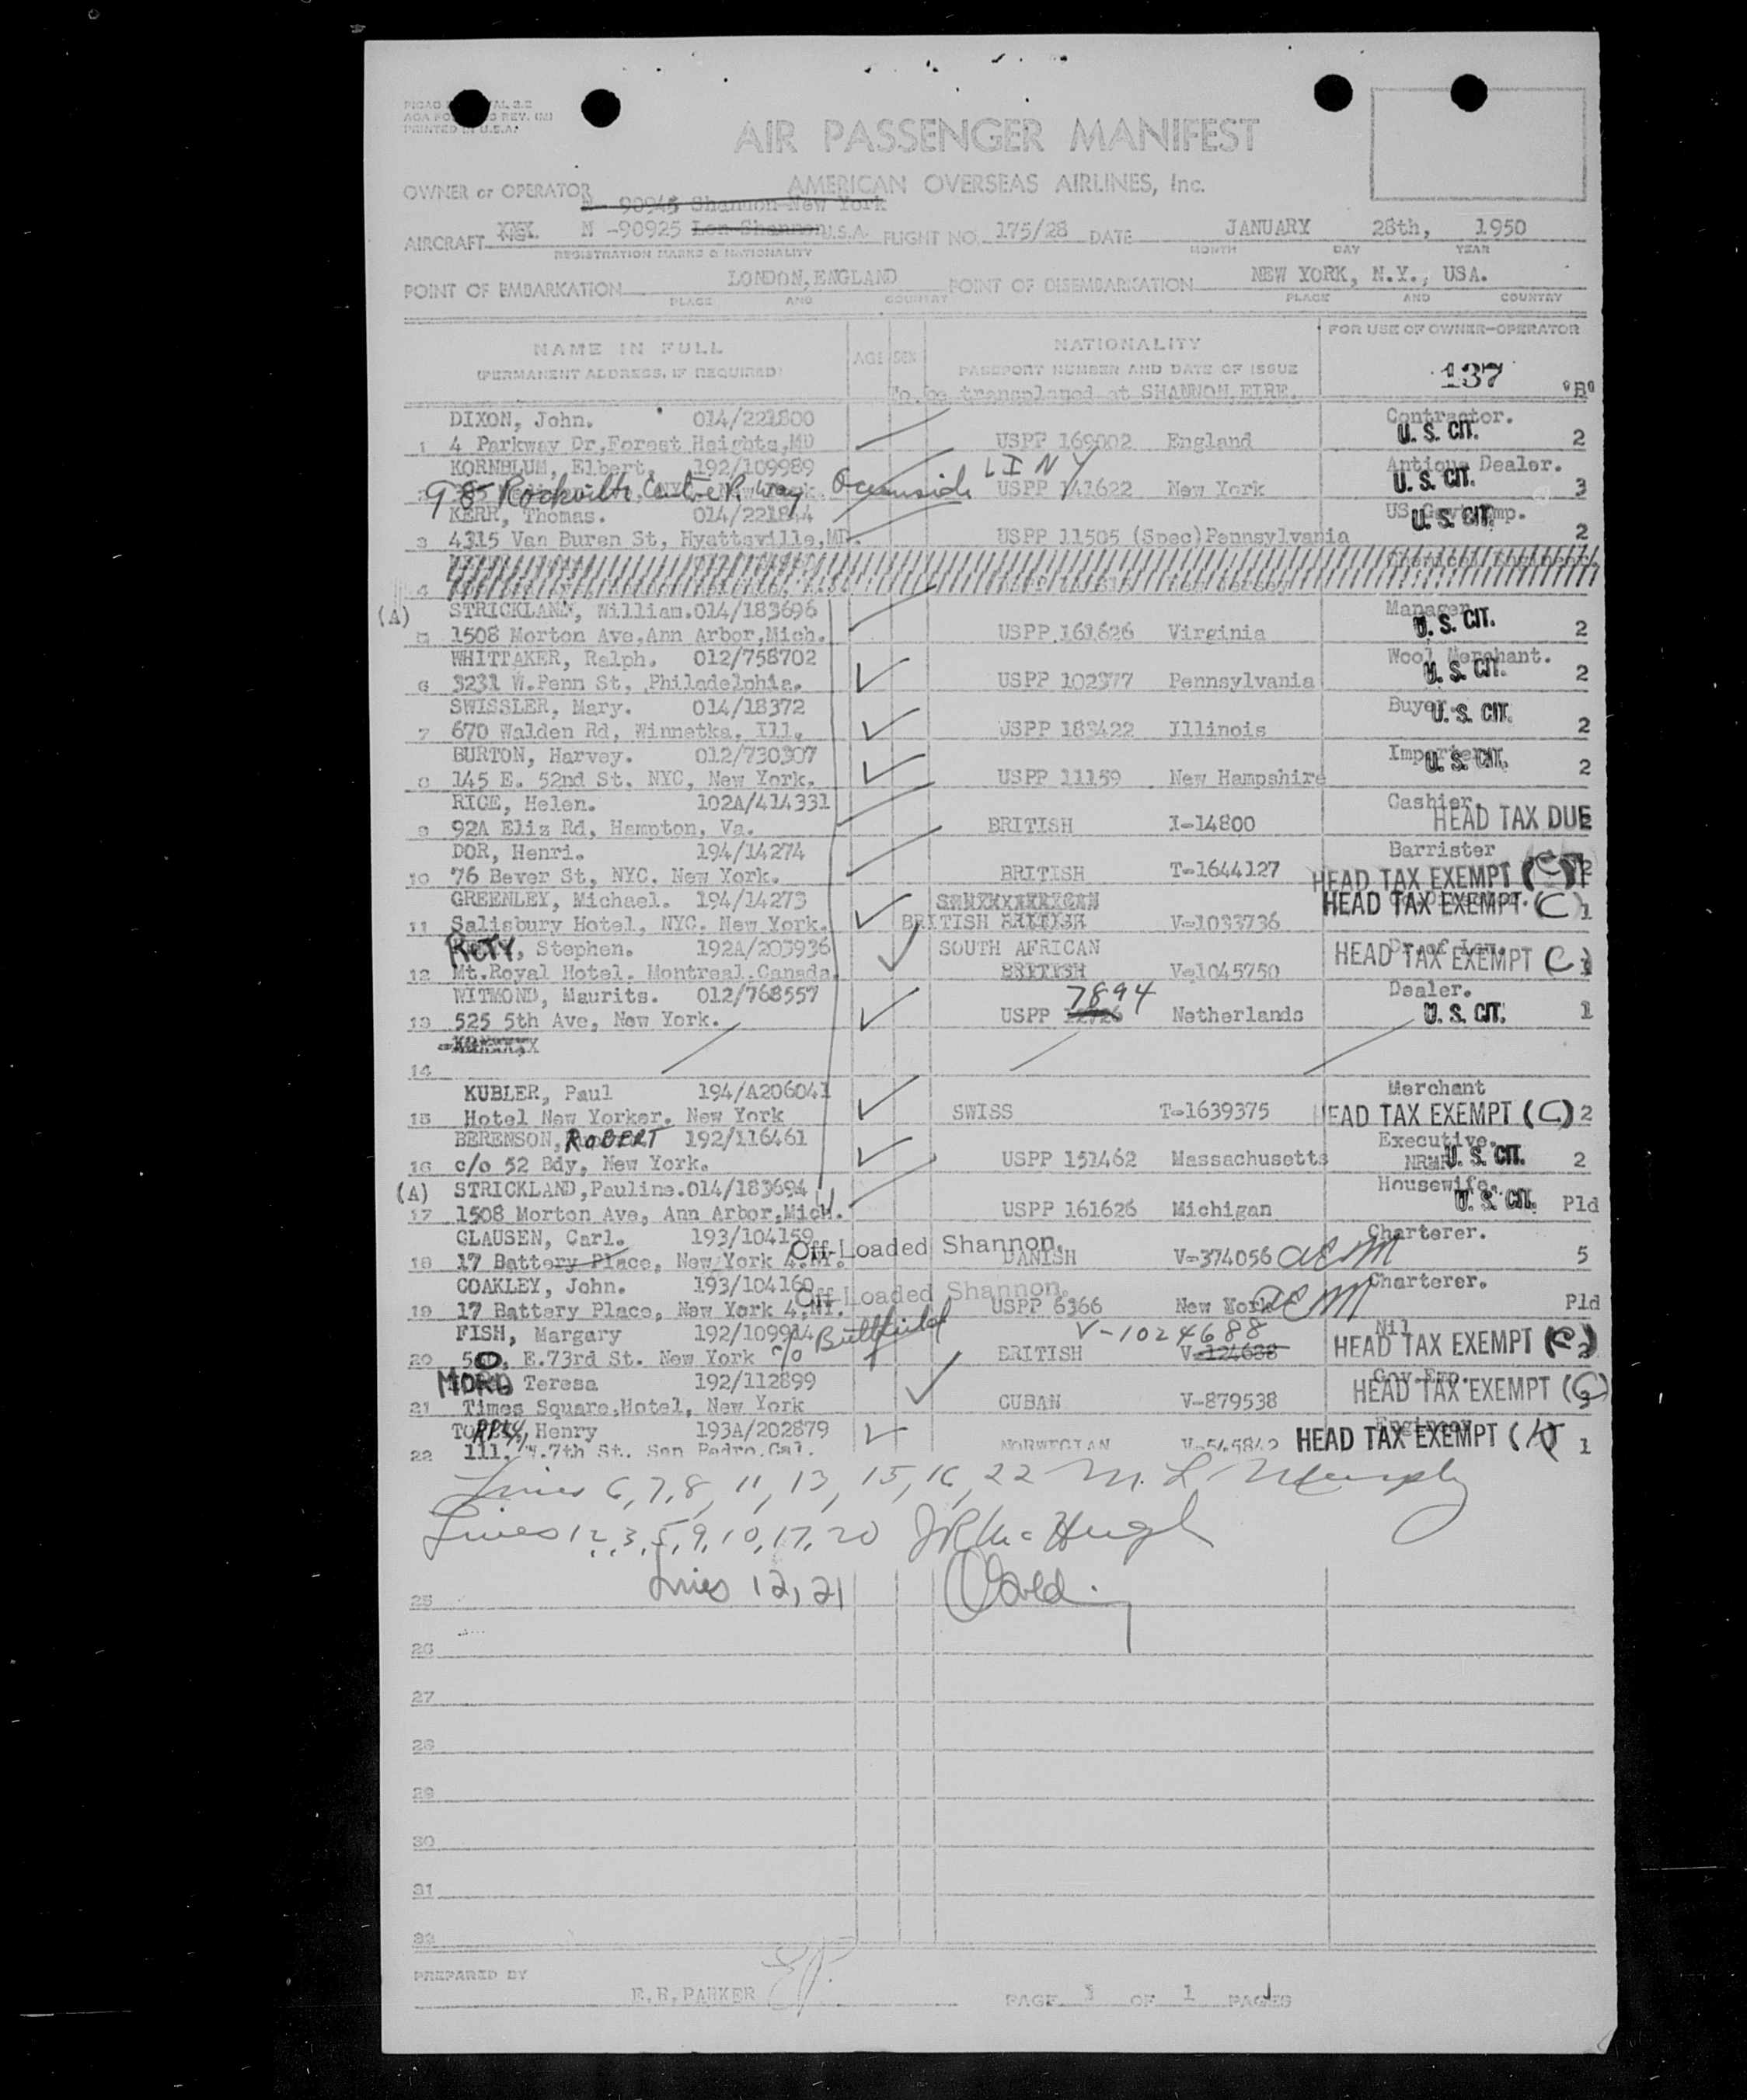 PRINTED IN U.S.A.
AIR PASSENGER MANIFEST
OWNER or OPERATOR AMERICAN OVERSEAS AIRLINES, Inc.
N- 90945 Shannon-New York
AIRCRAFT N -90925 Lon-Shannon U.S.A. FLIGHT NO. 175/28 DATE JANUARY 28th, 1950
REGISTRATION MARKS & NATIONALITY MONTH DAY YEAR
POINT OF EMBARKATION LONDON, ENGLAND POINT OF DISEMBARKATION NEW YORK, N.Y., USA.
PLACE AND COUNTRY PLACE AND COUNTRY
NAME IN FULL AGE SEX NATIONALITY FOR USE OF OWNER-OPERATOR
(PERMANENT ADDRESS, IF REQUIRED) PASSPORT NUMBER AND DATE OF ISSUE 137
To be transplaned at SHANNON, EIRE. "B"
DIXON, John. 014/221800 Contractor.
1 4 Parkway Dr, Forest Heights, MD USPP 169002 England U. S. CIT. 2
KORNBLUM, Elbert. 192/109989 Antique Dealer.
98 Rockville Centre P. Way Oceanside L I N Y USPP 141622 New York U. S. CIT. 3
KERR, Thomas. 014/221844 US Gov't Emp.
3 4315 Van Buren St, Hyattsville, MD. USPP 11505 (Spec) Pennsylvania U. S. CIT. 2
4
(A) STRICKLAND, William. 014/183696 Manager
5 1508 Morton Ave, Ann Arbor, Mich. USPP 161626 Virginia U. S. CIT. 2
WHITTAKER, Ralph. 012/758702 Wool Merchant.
6 3231 W.Penn St, Philadelphia. USPP 102377 Pennsylvania U. S. CIT. 2
SWISSLER, Mary. 014/18372 Buyer
7 670 Walden Rd, Winnetka, Ill. USPP 183422 Illinois U. S. CIT. 2
BURTON, Harvey. 012/730307 Importer
8 145 E. 52nd St. NYC, New York. USPP 11159 New Hampshire U. S. CIT. 2
RICE, Helen. 102A/414331 Cashier.
9 92A Eliz Rd, Hampton, Va. BRITISH I-14800 HEAD TAX DUE
DOR, Henri. 194/14274 Barrister
10 76 Bever St, NYC. New York. BRITISH T-1644127 HEAD TAX EXEMPT (C) 2
GREENLEY, Michael. 194/14273
11 Salisbury Hotel, NYC. New York. BRITISH V-1033736 HEAD TAX EXEMPT (C) 1
RETY, Stephen. 192A/203936 SOUTH AFRICAN Dr. of Law.
12 Mt.Royal Hotel. Montreal.Canada. BRITISH V-1045750 HEAD TAX EXEMPT (C)
WITMOND, Maurits. 012/768557 7894 Dealer.
13 525 5th Ave, New York. USPP Netherlands U. S. CIT. 1
14
KUBLER, Paul 194/A206041 Merchant
15 Hotel New Yorker, New York SWISS T-1639375 HEAD TAX EXEMPT (C) 2
BERENSON, ROBERT 192/116461 Executive.
16 c/o 52 Bdy, New York. USPP 151462 Massachusetts U. S. CIT. 2
(A) STRICKLAND, Pauline. 014/183694 Housewife.
17 1508 Morton Ave, Ann Arbor, Mich. USPP 161626 Michigan U. S. CIT. Pld
CLAUSEN, Carl. 193/104159 Off-Loaded Shannon. Charterer.
18 17 Battery Place, New York 4.NY. DANISH V-374056 5
COAKLEY, John. 193/104160 Off-Loaded Shannon. Charterer.
19 17 Battery Place, New York 4.NY. USPP 6366 New York Pld
FISH, Margary 192/109914 Buttfield V-1024688 Nil
20 E.73rd St. New York c/o BRITISH V-124688 HEAD TAX EXEMPT (C) 2
Teresa 192/112899 Gov.Emp.
21 Times Square, Hotel, New York CUBAN V-879538 HEAD TAX EXEMPT (C)
Henry 193A/202879 Engineer
22 111. W.7th St. San Pedro.Cal. NORWEGIAN V-545842 HEAD TAX EXEMPT 1
Lines 6, 7, 8, 11, 13, 15, 16, 22 M. L. Murphy
Lines 1 2, 3, 5, 9, 10, 17, 20 J R McHugh
25 Lines 12, 21
26
27
28
29
30
31
32
PREPARED BY
E.H.PARKER PAGE 1 OF 1 PAGES